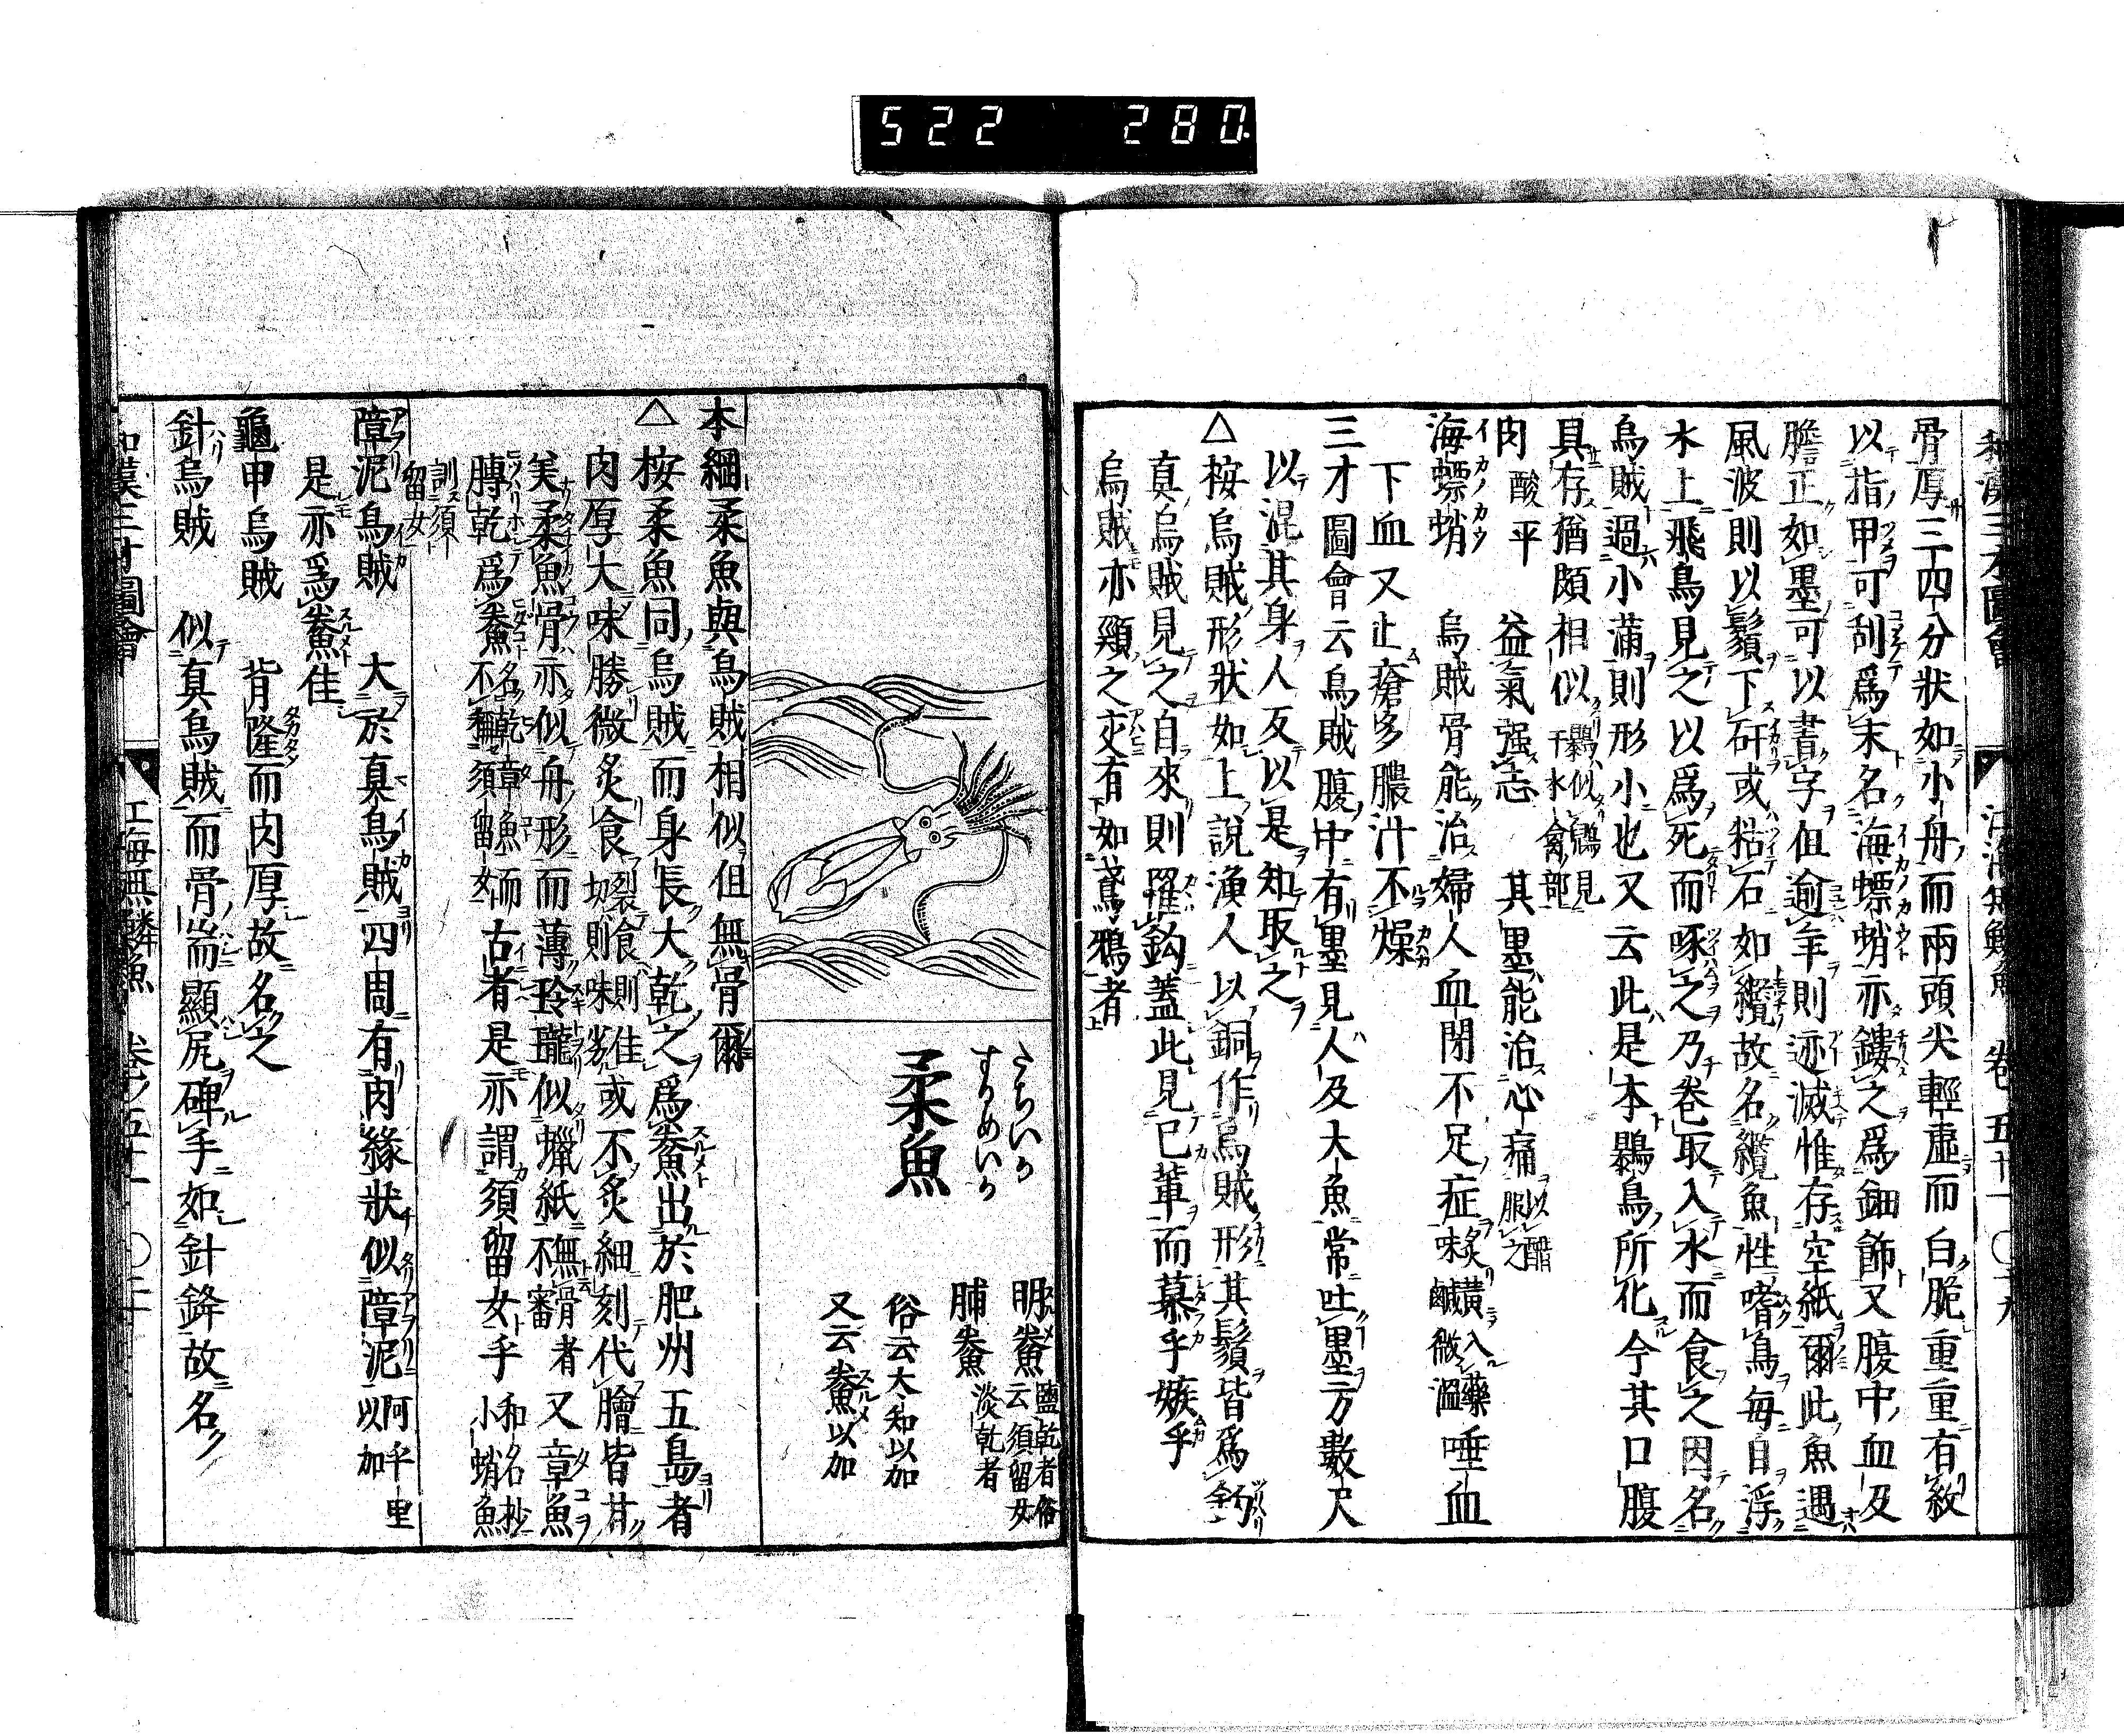 522 280
和漢三才圖會 江海無鱗魚 卷五十一 ○十九
骨厚三四分狀如小舟而兩頭尖輕虛而白脆重重有紋
以指甲可刮爲末名海螵蛸亦鏤之爲鈿飾又腹中血及
膽正如墨可以書字但逾年則迹滅惟存空紙爾此魚遇
風波則以鬚下矴或粘石如纜故名纜魚性嗜烏每自浮
水上飛烏見之以爲死而啄之乃卷取入水而食之因名
烏賊過小滿則形小也又云此是本鸔烏所化今其口腹
具存猶頗相似鸔似鴢見于水禽部
肉 酸平 益氣强志 其墨能治心痛以醋服之
海螵蛸 烏賊骨能治婦人血閉不足症炙黃入藥味鹹微溫唾血
下血又止瘡多膿汁不燥
三才圖會云烏賊腹中有墨見人及大魚常吐墨方數尺
以混其身人反以是知取之
△桉烏賊形狀如上說漁人以銅作烏賊形其鬚皆爲鈎
真烏賊見之自來則罹鈎蓋此見己軰而慕乎嫉乎
烏賊亦頸之交有如鳶鴉者
たちいか
するめいか
柔魚
明鮝 鹽乾者俗云須留女
脯鮝 淡乾者
俗云太知以加
又云鮝以加
本綱柔魚與烏賊相似但無骨爾
△桉柔魚同烏賊而身長大乾之爲鮝出於肥州五島者
肉厚大味勝微炙食裂食則佳切則味劣或不炙細刻代膾皆甘
美柔魚骨亦似舟形而薄玲瓏似蠟紙無骨者不審又章魚
䏝乾爲鮝名乾章魚而不稱須留女古者是亦謂須留女乎和名抄小蛸魚
訓須留女
障泥烏賊 大於真烏賊四周有肉緣狀似障泥阿乎里以加
是亦爲鮝佳
龜甲烏賊 背隆而肉厚故名之
針烏賊 似真烏賊而骨耑顯尻碑手如針鋒故名
和漢三才圖會 江海無鱗魚 卷ノ五十一 ○二十